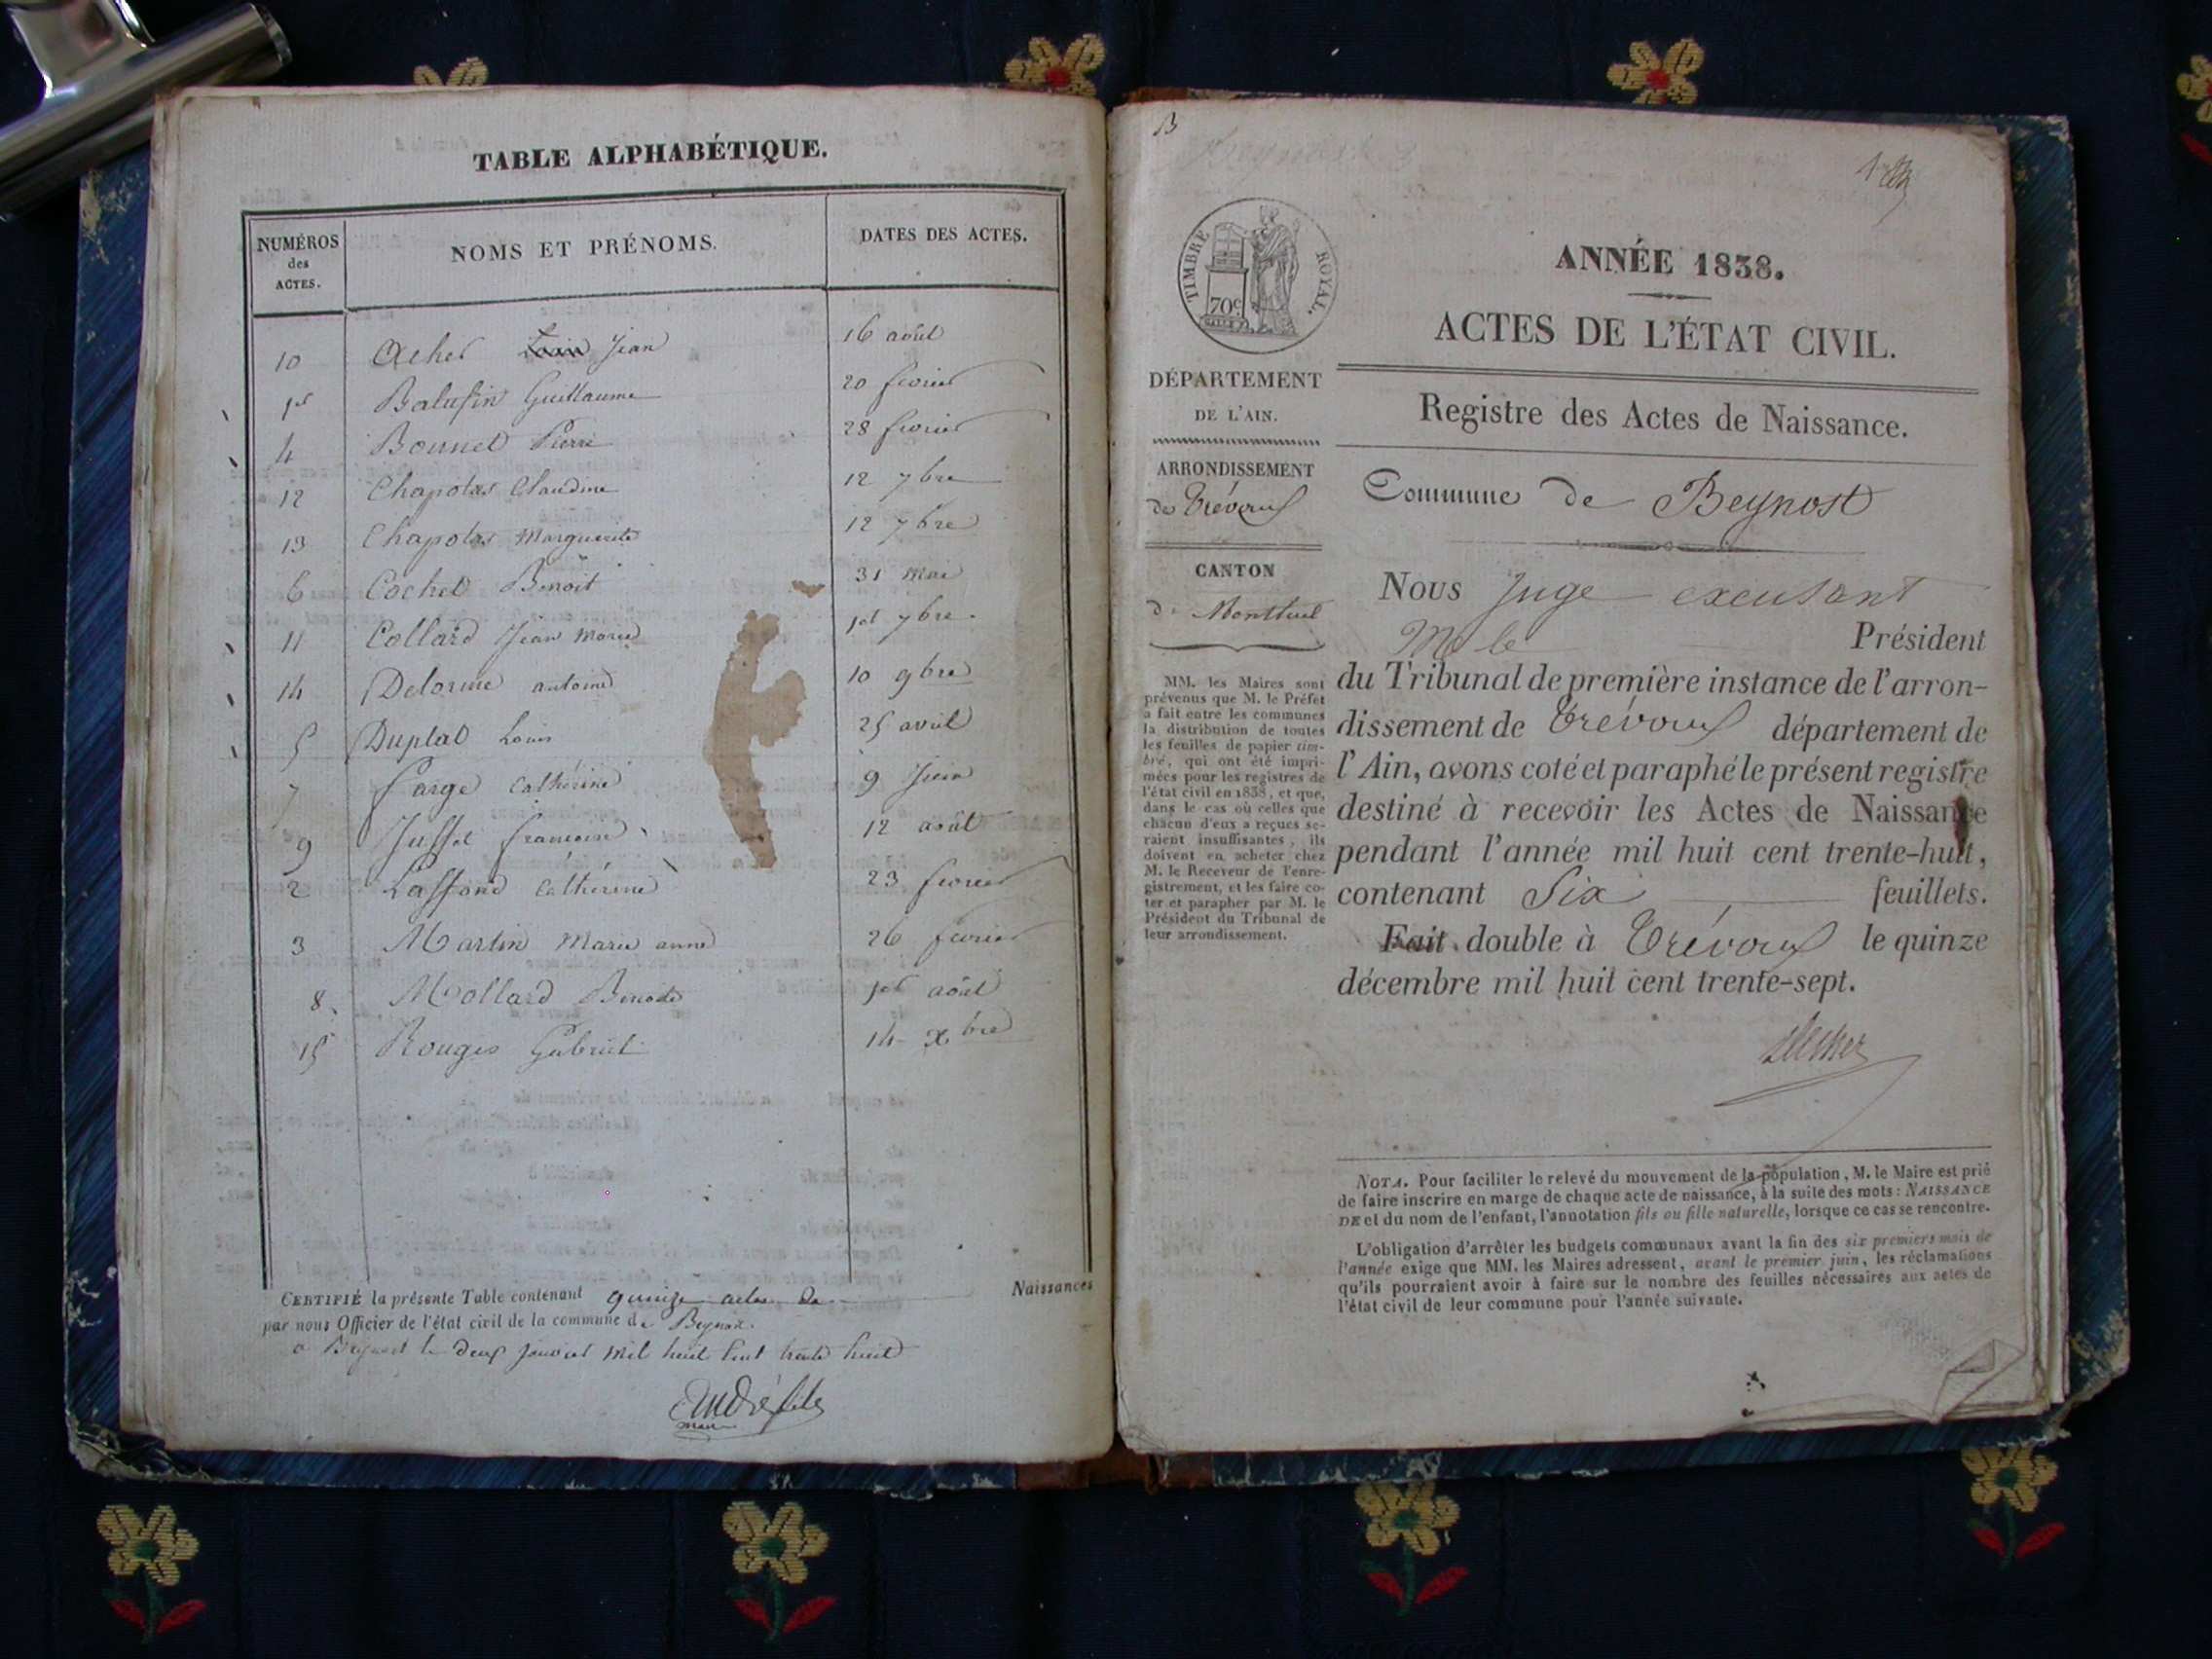 TABLE ALPHABÉTIQUE.
NUMÉROS
des
ACTES.
NOMS ET PRÉNOMS.
DATES DES ACTES.
10 Acher Jean 16 août
1er Balufin Guillaume 20 fevrier
4 Bonnet Pierre 28 fevrier
12 Chapotas Claudine 12 7bre
13 Chapotas Marguerite 12 7bre
6 Cochet Benoit 31 mai
11 Collard Jean Marie 1er 7bre
14 Delorme antoine 10 9bre
5 Duplat Louis 25 avril
7 Farge Cathérine 9 Juin
9 Juffet francoise 12 août
2 Cathérine 23 fevrier
3 Martin Marie anne 26 fevrier
8 Mollard Benoite 1er août
15 Rouges Gabriel 14 xbre
CERTIFIÉ la présente Table contenant quinze actes de Naissances
par nous Officier de l'état civil de la commune de Beynost.
a Beynost le deux janvier mil huit cent trente huit
André fils
maire
B
TIMBRE ROYAL.
70c
DÉPARTEMENT
DE L'AIN.
ARRONDISSEMENT
de Trévoux
CANTON
de Montluel
MM. les Maires sont
prévenus que M. le Préfet
a fait entre les communes
la distribution de toutes
les feuilles de papier tim-
bré, qui ont été impri-
mées pour les registres de
l'état civil en 1838, et que,
dans le cas où celles que
chacun d'eux a reçues se-
raient insuffisantes, ils
doivent en acheter chez
M. le Receveur de l'enre-
gistrement, et les faire co-
ter et parapher par M. le
Président du Tribunal de
leur arrondissement.
ANNÉE 1838.
ACTES DE L'ÉTAT CIVIL.
Registre des Actes de Naissance.
Commune de Beynost
Nous Juge excusant
M le Président
du Tribunal de première instance de l'arron-
dissement de Trévoux département de
l'Ain, avons coté et paraphé le présent registre
destiné à recevoir les Actes de Naissance
pendant l'année mil huit cent trente-huit,
contenant Six feuillets.
Fait double à Trévoux le quinze
décembre mil huit cent trente-sept.
NOTA. Pour faciliter le relevé du mouvement de la population, M. le Maire est prié
de faire inscrire en marge de chaque acte de naissance, à la suite des mots: NAISSANCE
DE et du nom de l'enfant, l'annotation fils ou fille naturelle, lorsque ce cas se rencontre.
L'obligation d'arrêter les budgets communaux avant la fin des six premiers mois de
l'année exige que MM. les Maires adressent, avant le premier juin, les réclamations
qu'ils pourraient avoir à faire sur le nombre des feuilles nécessaires aux actes de
l'état civil de leur commune pour l'année suivante.